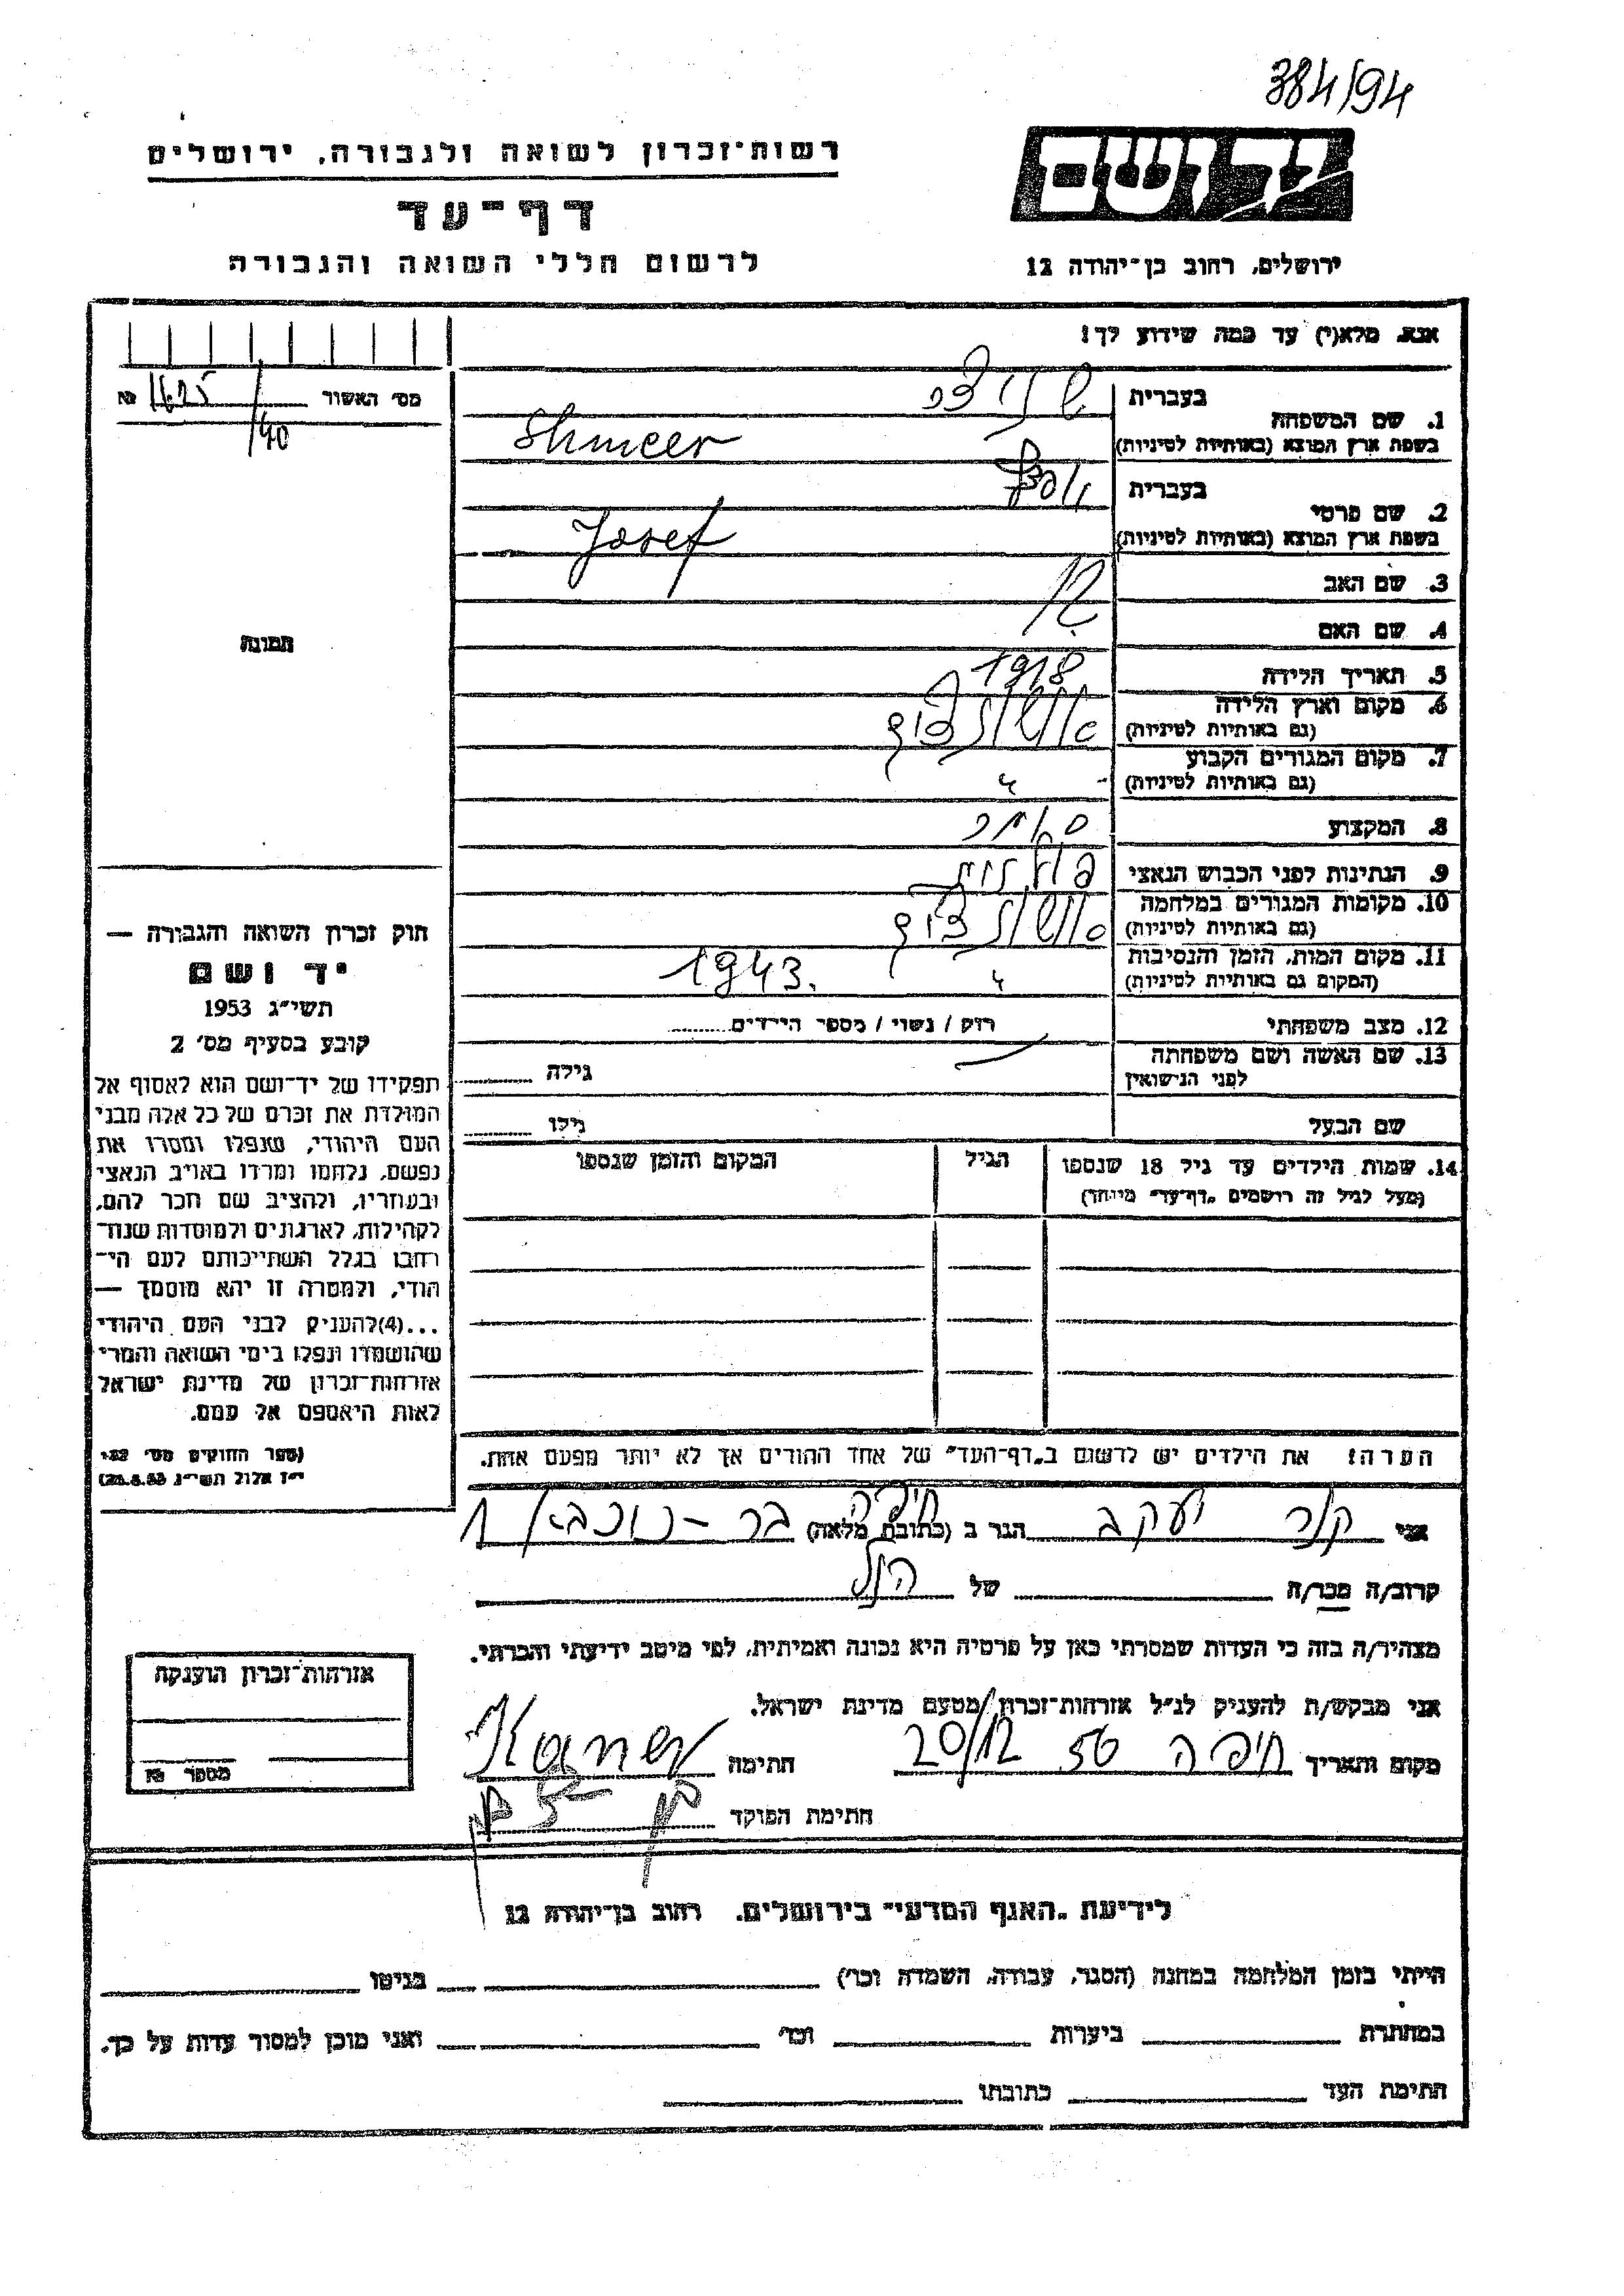 384/94
יד ושם
ירושלים, רחוב בן־יהודה 12
רשות־זכרון לשואה ולגבורה, ירושלים
דף־עד
לרשום חללי השואה והגבורה
אנא, מלא(י) עד כמה שידוע לך!
מס׳ האשור 1625/40 №
1. שם המשפחה
בעברית
בשפת ארץ המוצא (באותיות לטיניות) Shmeer
2. שם פרטי
בעברית יוסף
בשפת ארץ המוצא (באותיות לטיניות) Josef
3. שם האב
4. שם האם
5. תאריך הלידה 1918
6. מקום וארץ הלידה
(גם באותיות לטיניות)
7. מקום המגורים הקבוע
(גם באותיות לטיניות) "
8. המקצוע סוחר
9. הנתינות לפני הכבוש הנאצי פולנית
10. מקומות המגורים במלחמה
(גם באותיות לטיניות)
11. מקום המות, הזמן והנסיבות
(המקום גם באותיות לטיניות) " 1943.
12. מצב משפחתי רווק / נשוי / מספר הילדים
13. שם האשה ושם משפחתה
לפני הנישואין גילה
שם הבעל גילו
14. שמות הילדים עד גיל 18 שנספו הגיל המקום והזמן שנספו
(מעל לגיל זה רושמים „דף־עד״ מיוחד)
תמונה
חוק זכרון השואה והגבורה —
יד ושם
תשי״ג 1953
קובע בסעיף מס׳ 2
תפקידו של יד־ושם הוא לאסוף אל
המולדת את זכרם של כל אלה מבני
העם היהודי, שנפלו ומסרו את
נפשם, נלחמו ומרדו באויב הנאצי
ובעוזריו, ולהציב שם וזכר להם,
לקהילות, לארגונים ולמוסדות שנח־
רבו בגלל השתייכותם לעם הי־
הודי, ולמטרה זו יהא מוסמך —
...(4)להעניק לבני העם היהודי
שהושמדו ונפלו בימי השואה והמרי
אזרחות־זכרון של מדינת ישראל
לאות היאספם אל עמם.
(ספר החוקים מס׳ 132
י״ז אלול תשי״ג 28.8.53)
הערה: את הילדים יש לרשום ב„דף־העד״ של אחד ההורים אך לא יותר מפעם אחת.
אני קנר יעקב הגר ב (כתובת מלאה) חיפה בר-כוכבא 1
קרוב/ה מכר/ה של הנ"ל
מצהיר/ה בזה כי העדות שמסרתי כאן על פרטיה היא נכונה ואמיתית, לפי מיטב ידיעתי והכרתי.
אני מבקש/ת להעניק לנ״ל אזרחות־זכרון מטעם מדינת ישראל.
מקום ותאריך חיפה 20/12 56 חתימה Kaner
חתימת הפוקד
אזרחות־זכרון הוענקה
מספר №
לידיעת „האגף המדעי״ בירושלים, רחוב בן־יהודה 12
הייתי בזמן המלחמה במחנה (הסגר, עבודה, השמדה וכו׳) בגיטו
במחתרת ביערות וכו׳ ואני מוכן למסור עדות על כך.
חתימת העד כתובתו